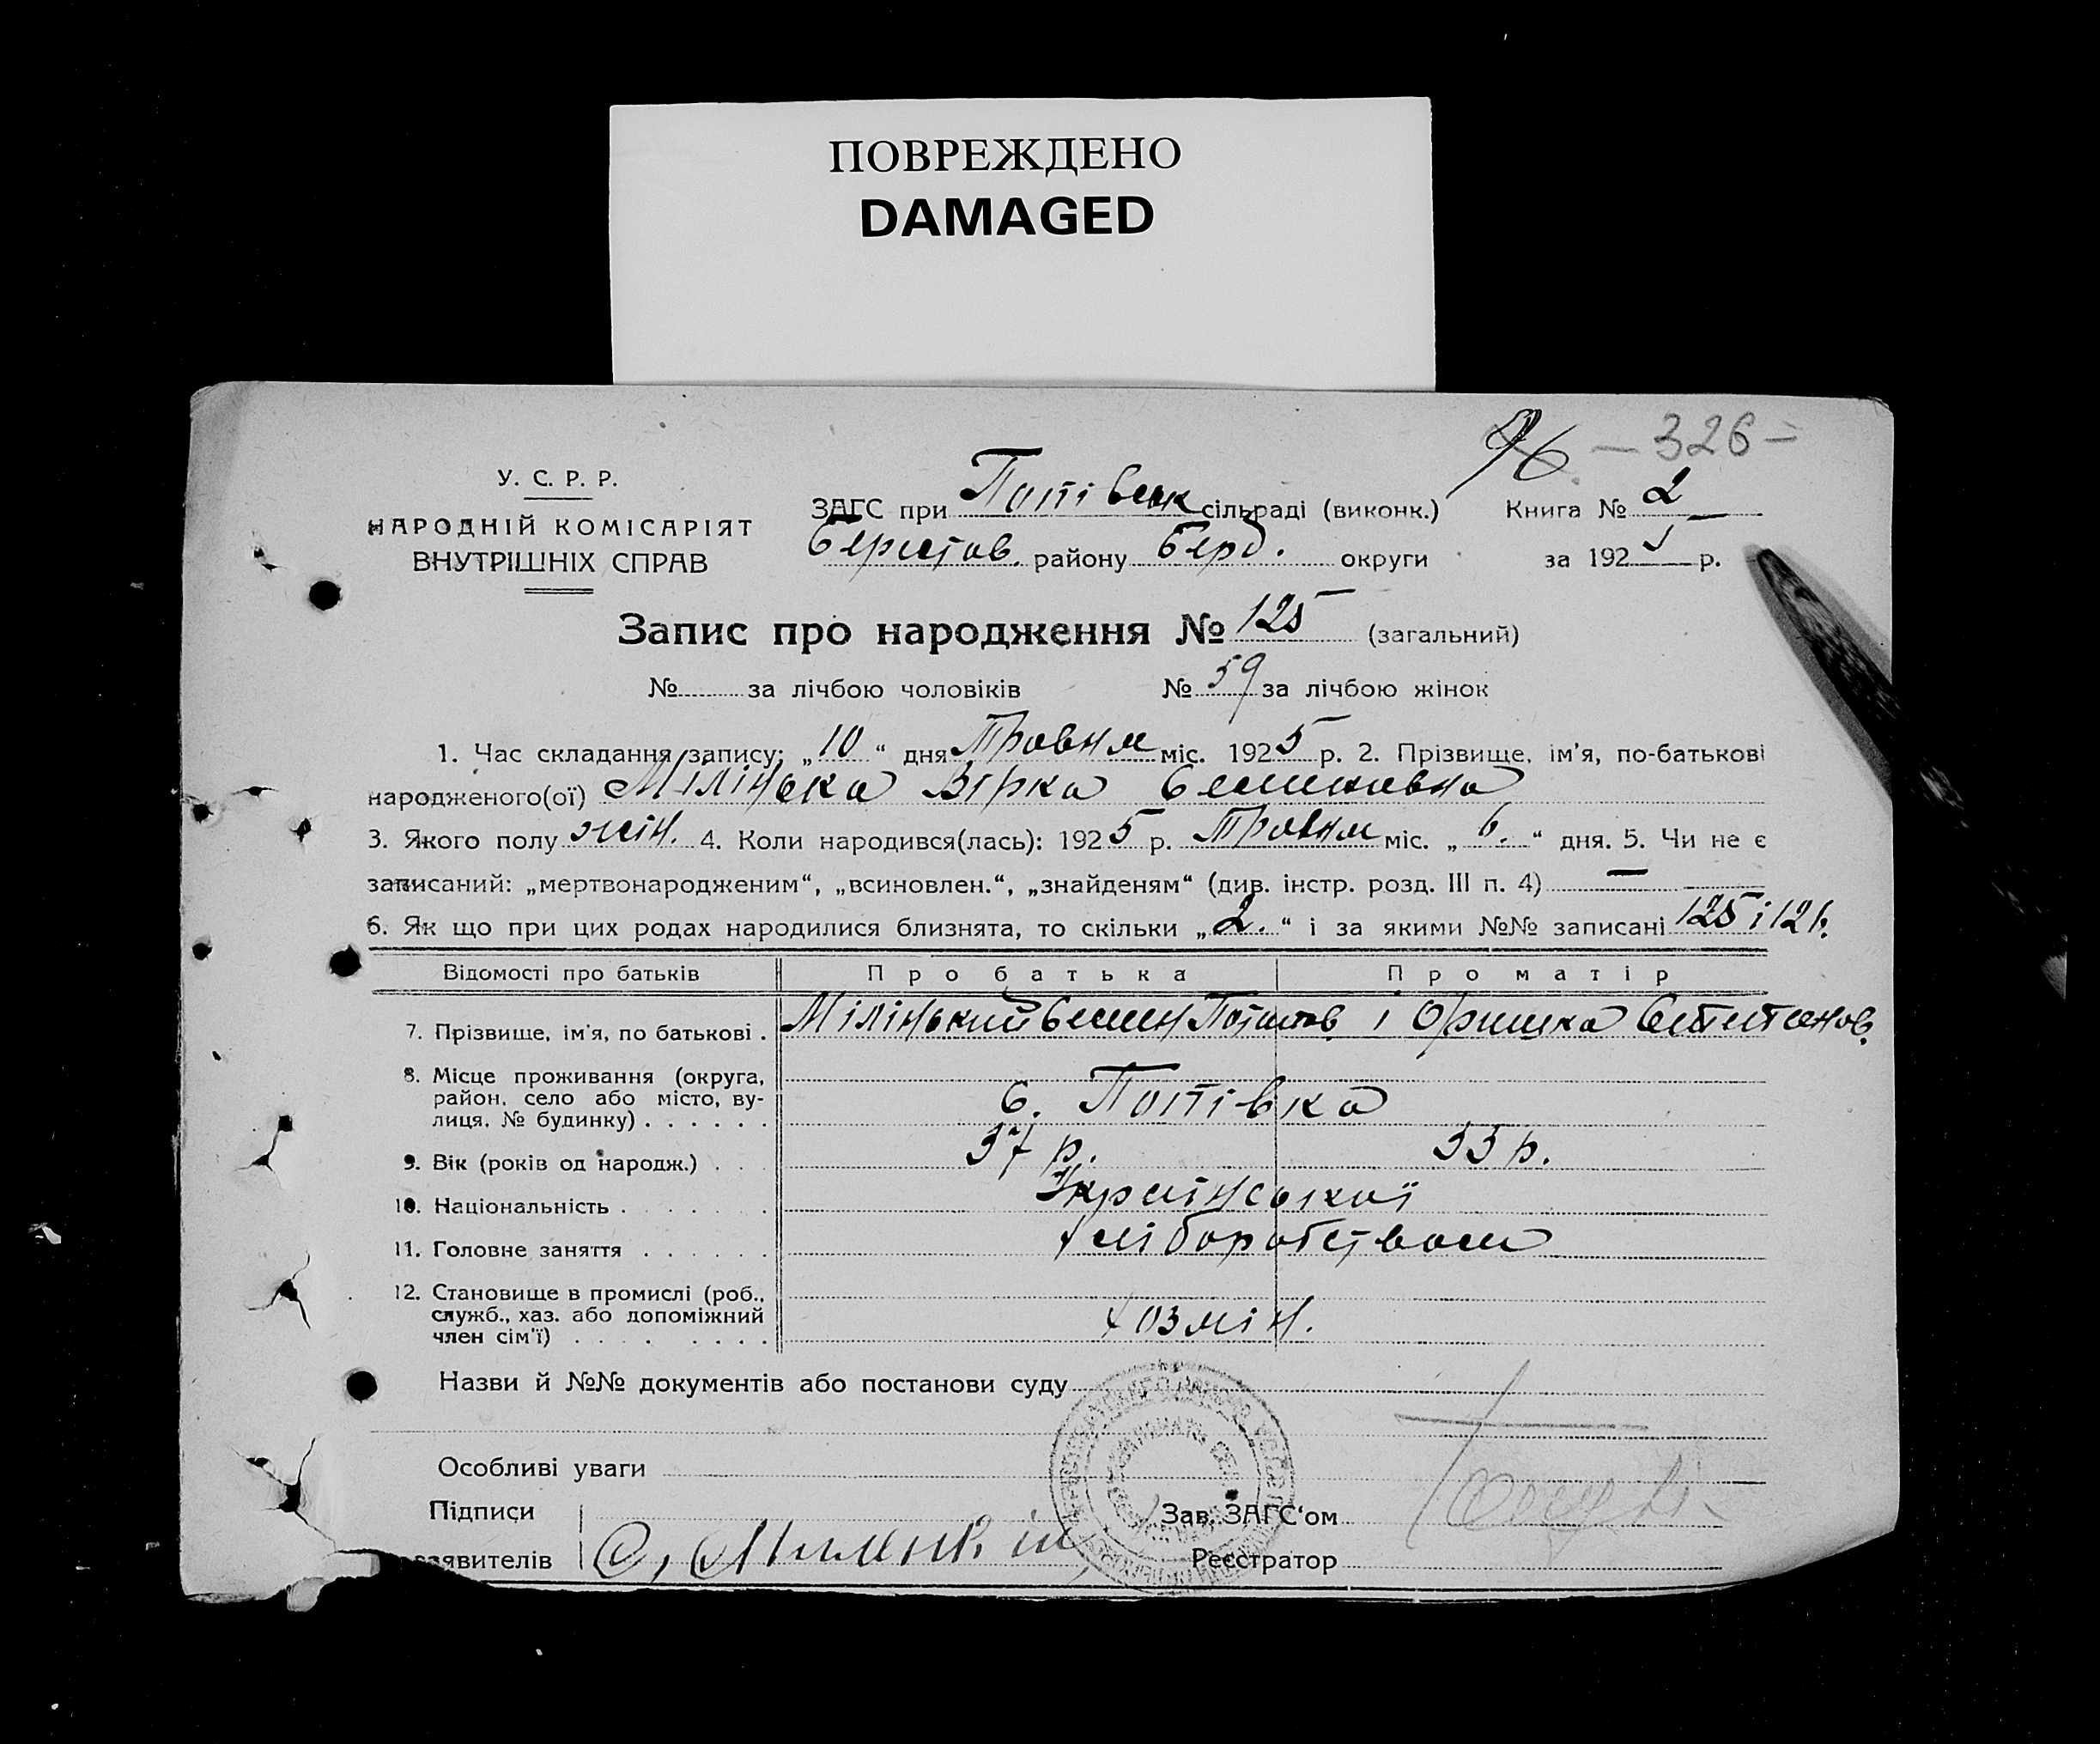 ПОВРЕЖДЕНО
DAMAGED
96 — 326 —
У. С. Р. Р.
НАРОДНІЙ КОМІСАРІЯТ
ВНУТРІШНІХ СПРАВ
ЗАГС при Попівськ сільраді (виконк.) Книга № 2
Берестов. району Берд. округи за 1925 р.
Запис про народження № 125 (загальний)
№ за лічбою чоловіків № 59 за лічбою жінок
1. Час складання запису: „10“ дня Травня міс. 1925 р. 2. Прізвище, ім'я, по-батькові
народженого(ої) Мілінська Вірка Семенівна
3. Якого полу жін. 4. Коли народився(лась): 1925 р. Травня міс. „6.“ дня. 5. Чи не є
записаний: „мертвонародженим“, „всиновлен.“, „знайденям“ (див. інстр. розд. III п. 4) —
6. Як що при цих родах народилися близнята, то скільки „2.“ і за якими №№ записані 125 і 126.
Відомості про батьків Про батька Про матір
7. Прізвище, ім'я, по батькові . Мілінський Семен Потапов. і Оришка Степанов.
8. Місце проживання (округа,
район, село або місто, ву-
лиця, № будинку) . . . . . . С. Попівка
9. Вік (років од народж.) . . . 37 р. 33 р.
10. Національність . . . . . . . Української
11. Головне заняття . . . . . . хліборобством
12. Становище в промислі (роб.,
служб., хаз. або допоміжний
член сім'ї) . . . . . . . . хозяїн.
Назви й №№ документів або постанови суду
Особливі уваги
Підписи Зав. ЗАГС'ом
заявителів С, Реєстратор